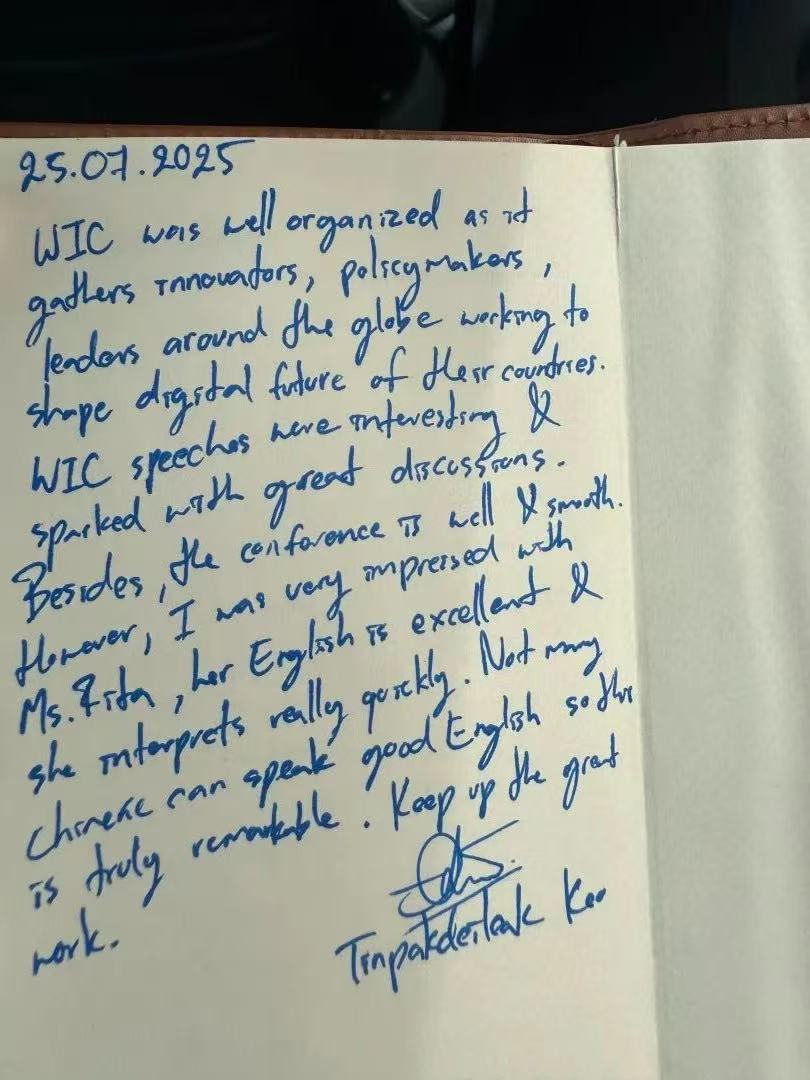 25.07.2025
WIC was well organized as it
gathers innovators, policymakers,
leaders around the globe working to
shape digital future of their countries.
WIC speeches were interesting &
sparked with great discussions.
Besides, the conference is well & smooth.
However, I was very impressed with
Ms. Rita, her English is excellent &
she interprets really quickly. Not many
Chinese can speak good English so this
is truly remarkable. Keep up the great
work.